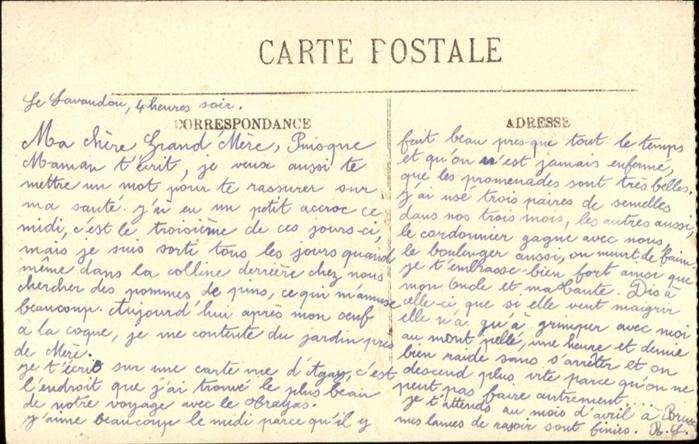 CARTE POSTALE
Le Lavandou, 4 heures soir.
CORRESPONDANCE
Ma Chère Grand'Mère, Puisque
Maman t'écrit, je veux aussi te
mettre un mot pour te rassurer sur
ma santé. j'ai eu un petit accroc ce
midi, c'est le troisième de ces jours-ci,
mais je suis sorti tous les jours quand
même dans la colline derrière chez nous
chercher des pommes de pins, ce qui m'amuse
beaucoup. Aujourd'hui après mon oeuf
à la coque, je me contente du jardin près
de Mère.
je t'écris sur une carte vue d'Agay, c'est
l'endroit que j'ai trouvé le plus beau
de notre voyage avec le
j'aime beaucoup le midi parce qu'il y
ADRESSE
fait beau presque tout le temps
et qu'on n'est jamais enfermé,
que les promenades sont très belles.
j'ai usé trois paires de semelles
dans nos trois mois, les autres aussi,
le cordonnier gagne avec nous,
le boulanger aussi, on meurt de faim
je t'embrasse bien fort ainsi que
mon Oncle et ma Tante. Dis à
celle-ci que si elle veut maigrir
elle n'a qu'à grimper avec moi
au mont pellé, une heure et demie
bien raide sans s'arrêter et on
descend plus vite parce qu'on ne
peut pas faire autrement....
je t'attends au mois d'avril à
mes lames de rasoir sont finies.